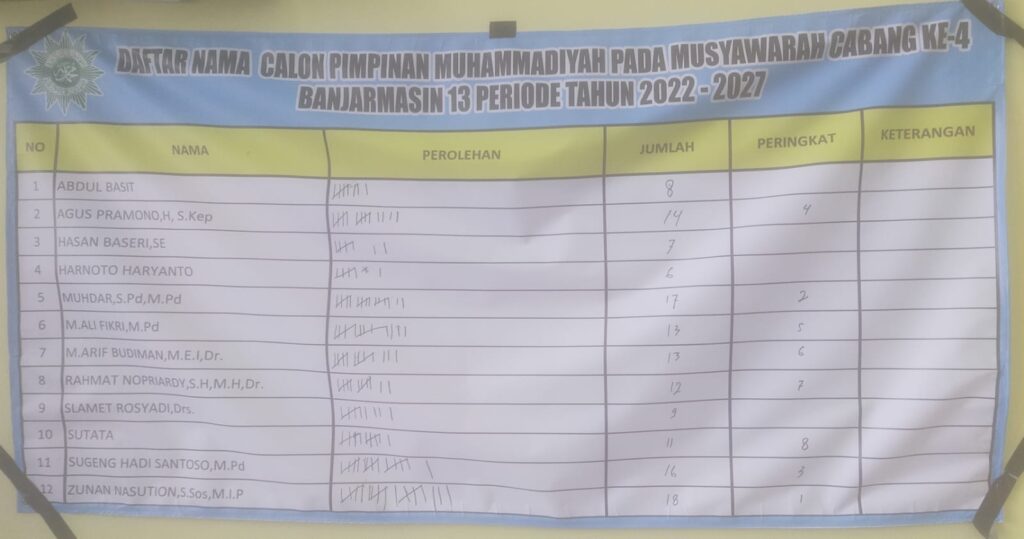 DAFTAR NAMA CALON PIMPINAN MUHAMMADIYAH PADA MUSYAWARAH CABANG KE-4
BANJARMASIN 13 PERIODE TAHUN 2022 - 2027
NO NAMA PEROLEHAN JUMLAH PERINGKAT KETERANGAN
1 ABDUL BASIT 8
2 AGUS PRAMONO,H, S.Kep 14 4
3 HASAN BASERI,SE 7
4 HARNOTO HARYANTO 6
5 MUHDAR,S.Pd,M.Pd 17 2
6 M.ALI FIKRI,M.Pd 13 5
7 M.ARIF BUDIMAN,M.E.I,Dr. 13 6
8 RAHMAT NOPRIARDY,S.H,M.H,Dr. 12 7
9 SLAMET ROSYADI,Drs. 9
10 SUTATA 11 8
11 SUGENG HADI SANTOSO,M.Pd 16 3
12 ZUNAN NASUTION,S.Sos,M.I.P 18 1